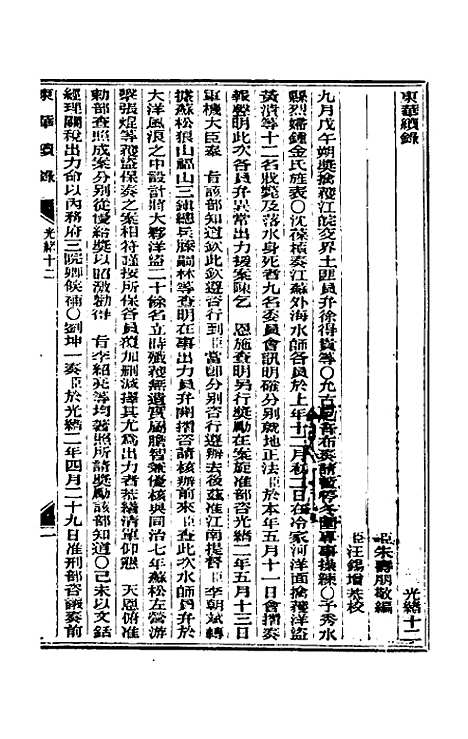 東華續錄
光緒十二
臣朱壽朋敬編
臣汪錫增恭校
九月戊午朔獎擒獲江皖交界土匪員弁徐得貴等〇允古尼音布奏請暫停冬圍專事操練〇予秀水
縣烈婦鍾金氏旌表〇沈葆楨奏江蘇外海水師各員於上年十二月初二日在冷家河洋面擒獲洋盜
黃濟等十二名戕斃及落水身死者九名委員會訊明確分別就地正法臣於本年五月十一日會摺奏
報聲明此次各員弁異常出力援案陳乞 恩施查明另行獎勵在案旋准部咨光緒二年五月十三日
軍機大臣奉 旨該部知道欽此欽遵咨行到臣當即分別咨行遵辦去後茲准江南提督臣李朝斌轉
據蘇松狼山福山三鎮總兵滕嗣林等查明在事出力員弁開摺咨請核辦前來臣查此次水師員弁於
大洋風浪之中設計將大夥洋盜二十餘名立時殲獲無遺實屬膽智兼優核與同治七年蘇松左營游
擊張焜等獲盜保奏之案相符謹按所保各員復加刪減擇其尤為出力者恭繕清單仰懇 天恩俯准
勅部查照成案分別從優給獎以昭激勸得 旨李紹英等均著照所請獎勵該部知道〇己未以文銛
經理關稅出力命以內務府三院卿候補〇劉坤一奏臣於光緒二年四月二十九日准刑部咨議奏前
東華續錄
光緒十二